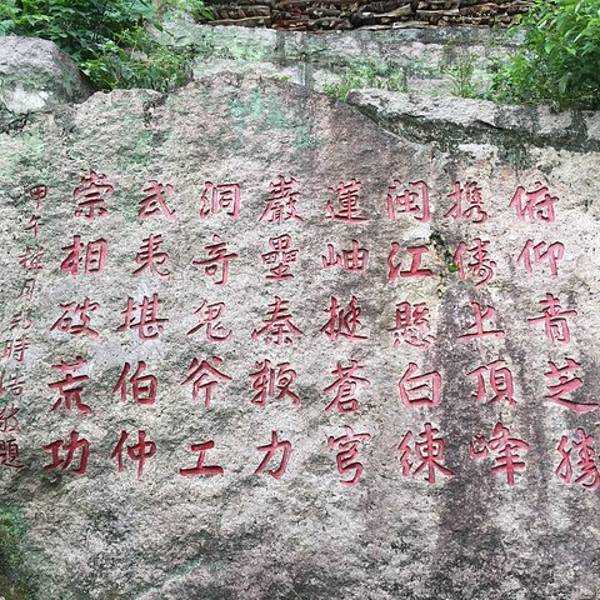 俯仰青芝勝
携儔上頂峰
閩江懸白練
蓮岫挺蒼穹
巖壘秦鞭力
洞奇鬼斧工
武夷堪伯仲
崇相破荒功
甲午桂月 時浩敬題